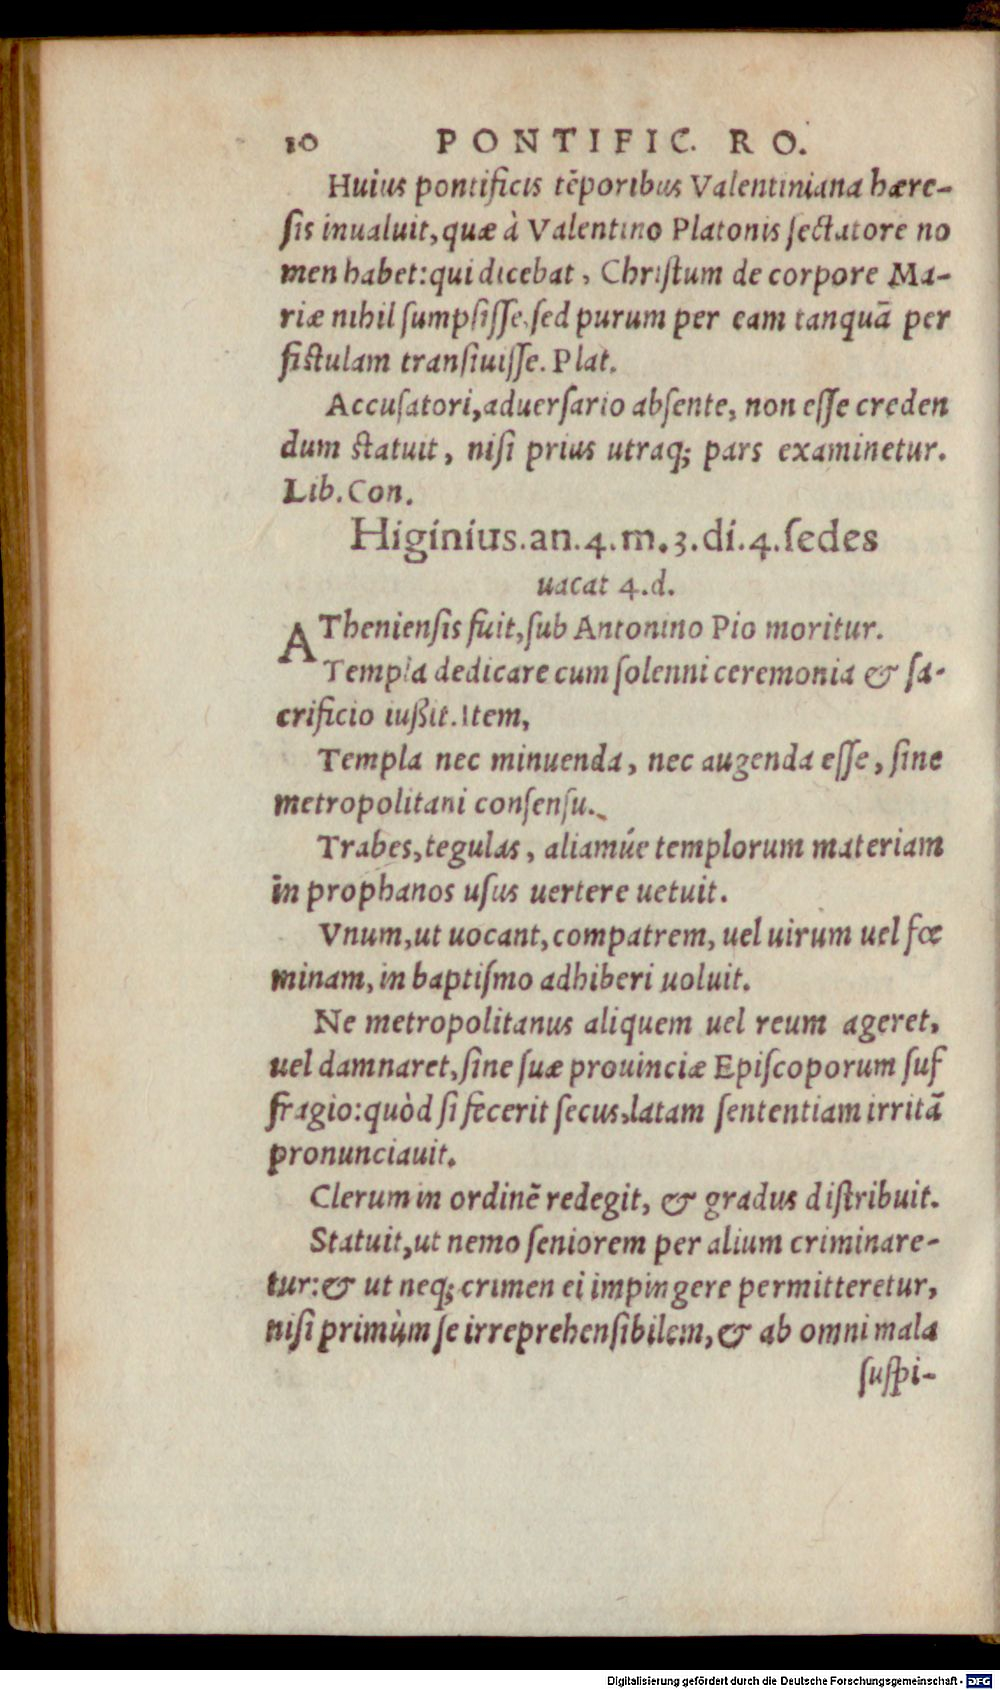 10 PONTIFIC. RO.
Huius pontificis tēporibus Valentiniana hære-
ſis inualuit, quæ à Valentino Platonis ſectatore no
men habet: qui dicebat, Chriſtum de corpore Ma-
riæ nihil ſumpſiſſe, ſed purum per eam tanquā per
fiſtulam tranſiuiſſe. Plat.
Accuſatori, aduerſario abſente, non eſſe creden
dum ſtatuit, niſi prius utraq; pars examinetur.
Lib. Con.
Higinius. an. 4. m. 3. di. 4. ſedes
uacat 4. d.
AThenienſis fuit, ſub Antonino Pio moritur.
Templa dedicare cum ſolenni ceremonia & ſa-
crificio iußit. Item,
Templa nec minuenda, nec augenda eſſe, ſine
metropolitani conſenſu.
Trabes, tegulas, aliamúe templorum materiam
in prophanos uſus uertere uetuit.
Vnum, ut uocant, compatrem, uel uirum uel fœ
minam, in baptiſmo adhiberi uoluit.
Ne metropolitanus aliquem uel reum ageret,
uel damnaret, ſine ſuæ prouinciæ Epiſcoporum ſuf
fragio: quòd ſi fecerit ſecus, latam ſententiam irritā
pronunciauit.
Clerum in ordinē redegit, & gradus diſtribuit.
Statuit, ut nemo ſeniorem per alium criminare-
tur: & ut neq; crimen ei impingere permitteretur,
niſi primùm ſe irreprehenſibilem, & ab omni mala
ſuſpi-
Digitalisierung gefördert durch die Deutsche Forschungsgemeinschaft - DFG